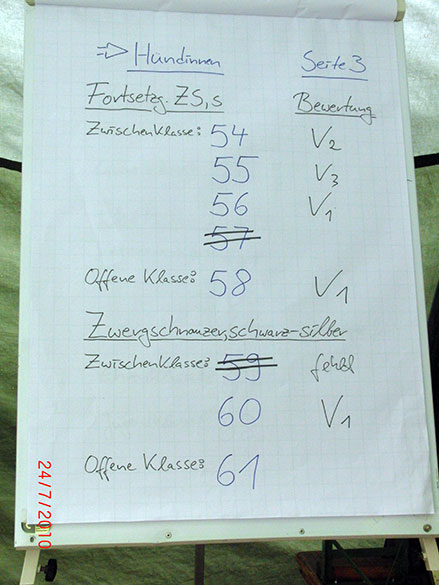 ⇒ Hündinnen Seite 3
Fortsetzg. ZS,s Bewertung
Zwischenklasse: 54 V2
55 V3
56 V1
57
Offene Klasse: 58 V1
Zwergschnauzer, schwarz-silber
Zwischenklasse: 59 fehlt
60 V1
Offene Klasse: 61
24/7/2010